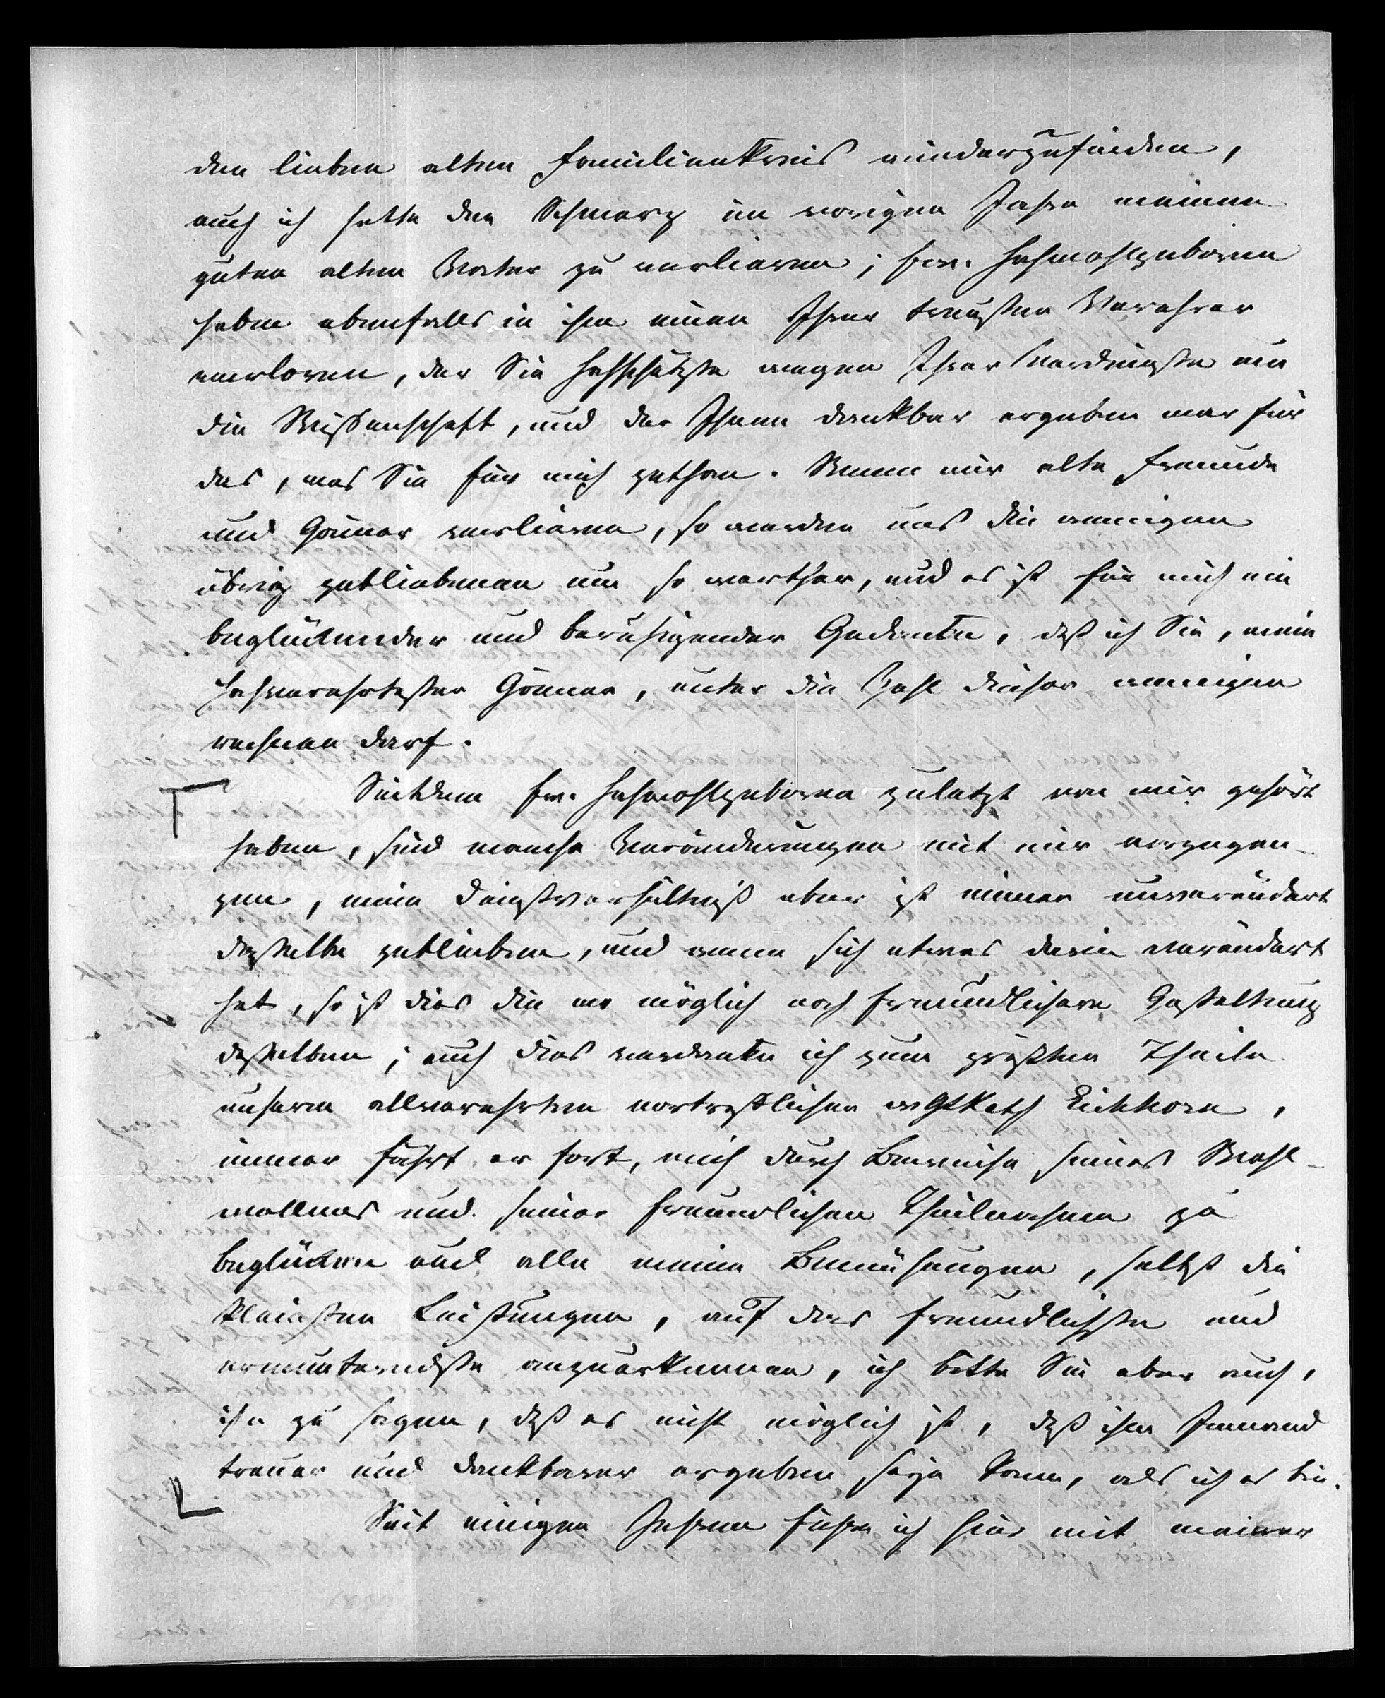 den lieben alten Familienkreis wiederzufinden,
auch ich hatte den Schmerz im vorigen Jahre meinen
guten alten Vater zu verlieren; Ew. Hochwohlgeboren
haben ebenfalls in ihm einen Ihrer treusten Verehrer
verloren, der Sie hochschätzte wegen Ihrer Verdienste um
die Wissenschaft, und der Ihnen dankbar ergeben war für
das, was Sie für mich gethan. Wenn wir alte Freunde
und Gönner verlieren, so werden uns die wenigen
übrig gebliebenen um so werther, und es ist für mich ein
beglückender und beruhigender Gedanke, daß ich Sie, mein
hochverehrtester Gönner, unter die Zahl dieser wenigen
rechnen darf.
Seitdem Ew. Hochwohlgeboren zuletzt von mir gehört
haben, sind manche Veränderungen mit mir vorgegan-
gen, mein Dienstverhältniß aber ist immer unverändert
dasselbe geblieben, und wenn sich etwas darin verändert
hat, so ist dies die wo möglich noch freundlichere Gestaltung
desselben; auch dies verdanke ich zum größten Theile
unserm allverehrten vortrefflichen Eichhorn,
immer fährt er fort, mich durch Beweise seines Wohl-
wollens und seiner freundlichen Theilnahme zu
beglücken und alle meine Bemühungen, selbst die
kleinsten Leistungen, auf das freundlichste und
ermunterndste anzuerkennen, ich bitte Sie aber auch,
ihm zu sagen, daß es nicht möglich ist, daß ihm Jemand
treuer und dankbarer ergeben seyn kann, als ich es bin.
Seit einigen Jahren führe ich hier mit meiner